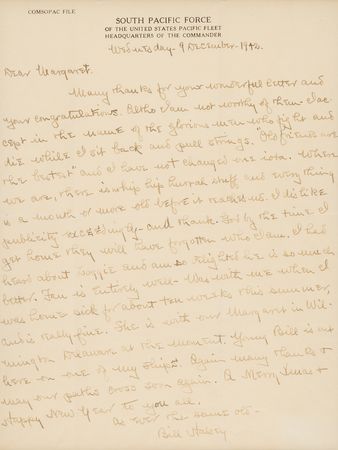 COMSOPAC FILE
SOUTH PACIFIC FORCE
OF THE UNITED STATES PACIFIC FLEET
HEADQUARTERS OF THE COMMANDER
Wednesday - 9 December - 1942.
Dear Margaret.
Many thanks for your wonderful letter and
your congratulations. Altho I am not worthy of them - I ac-
cept in the name of the glorious men who fight and
die while I sit back and pull strings. "Old friends are
the best" and I have not changed one iota. Where
we are, there is no hip hip hurrah stuff and everything
is a month or more old before it reaches us. I dislike
publicity exceedingly - and thank God by the time I
get home they will have forgotten who I am. I had
heard about and am so delighted he is so much
better. Fan is entirely well - Was with me when I
was home sick for about ten weeks this summer,
and is really fine. She is with our Margaret in Wil-
mington Delaware at the moment. Young Bill is out
here on one of my ships. Again many thanks &
may our paths cross soon again. A Merry Xmas &
Happy New Year to you all.
As ever the same old -
Bill Halsey